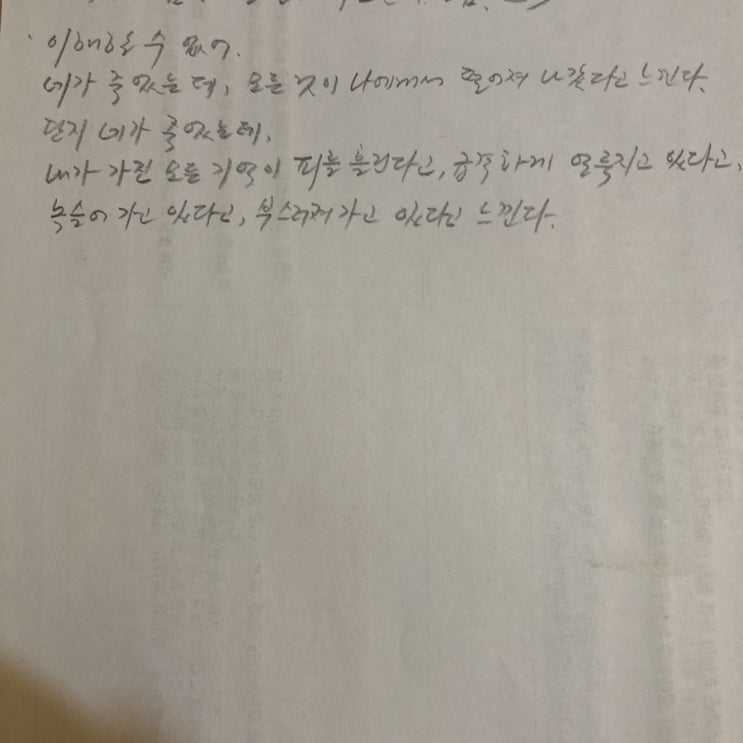 이해할 수 없어.
네가 죽었는데, 모든 것이 나에게서 떨어져 나갔다고 느낀다.
단지 네가 죽었는데,
내가 가진 모든 기억이 피를 흘린다고, 급격하게 얼룩지고 있다고,
녹슬어 가고 있다고, 부스러져 가고 있다고 느낀다.